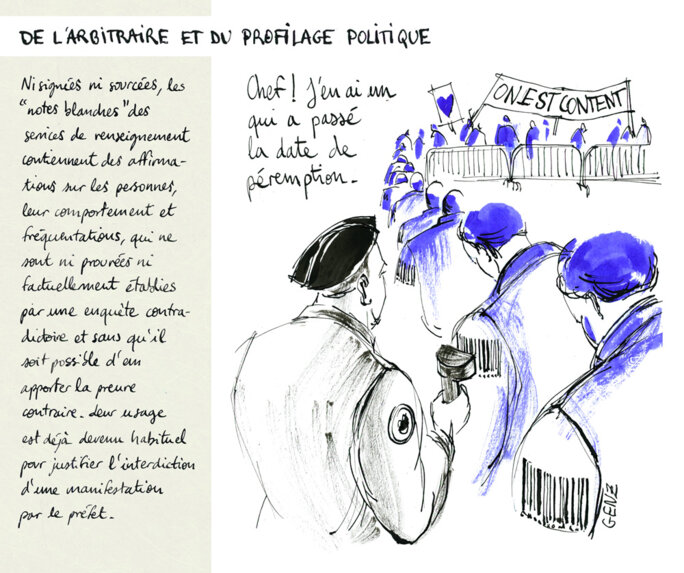 DE L'ARBITRAIRE ET DU PROFILAGE POLITIQUE
Ni signées ni sourcées, les
"notes blanches" des
services de renseignement
contiennent des affirma-
tions sur les personnes,
leur comportement et
fréquentations, qui ne
sont ni prouvées ni
factuellement établies
par une enquête contra-
dictoire et sans qu'il
soit possible d'en
apporter la preuve
contraire. Leur usage
est déjà devenu habituel
pour justifier l'interdiction
d'une manifestation
par le préfet.
Chef! J'en ai un
qui a passé
la date de
péremption.
ON EST CONTENT
GENZ